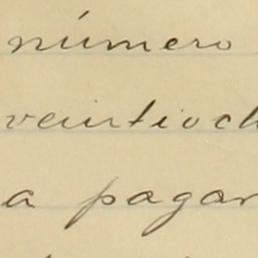 número
veintioch
a pagar